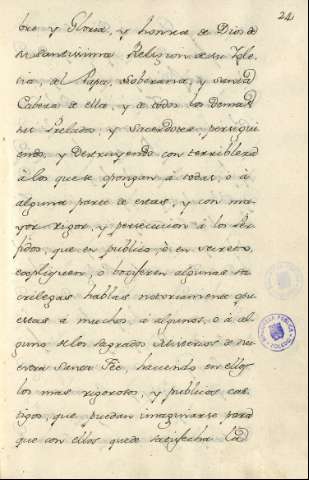 24
bre y Gloria, y honrra de Dios, de
su santissima Religion de su Igle-
sia, del Papa, Soberana, y santa
Cabeza de ella, y de todos los demas
sus Prelados, y Sacerdotes persigui
endo, y Destruyendo con terriblezza
à los que se opongan à todas, ò à
alguna parte de estas, y con ma-
yor rigor, y persecucion à los Per-
fidos, que en publico, ò en secreto,
expliquen, ò bociferen algunas sa
crilegas hablas notoriamente opu
estas à muchos, à algunos, o à al-
guno de los sagrados Misterios de nu
estra Santa Fee, haciendo en ellos
los mas rigorosos, y publicos cas-
tigos, que puedan imaginarse para
que con ellos quede satisfecha la
BIBLIOTECA PUBLICA
TOLEDO